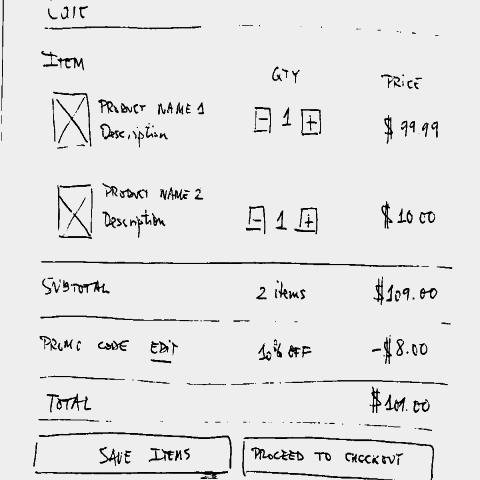 Cart
ITEM QTY PRICE
PRODUCT NAME 1 - 1 + $99.99
Description
PRODUCT NAME 2
Description - 1 + $10.00
SUBTOTAL 2 items $109.00
PROMO CODE EDIT 10% OFF -$8.00
TOTAL $101.00
SAVE ITEMS PROCEED TO CHECKOUT